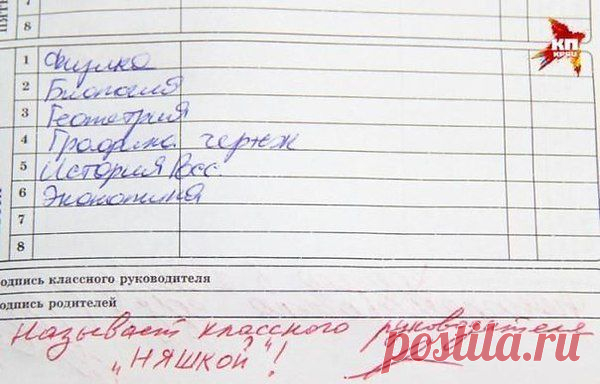 8
КП
KP.RU
1 Физика
2 Биология
3 Геометрия
4 Графика чертеж
5 История Росс.
6 Экономика
7
8
одпись классного руководителя
одпись родителей
Называет классного руководителя
„НЯШКОЙ"!
postila.ru